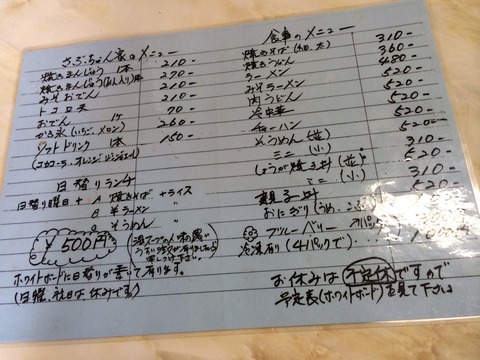 さぶちゃん家のメニュー
焼きまんじゅう 1本 210-
焼きまんじゅう(あん入り)1本 270-
みそおでん 210-
トコロ天 210-
おでん 1ケ 70-
かき氷(いちご、メロン) 260-
ソフトドリンク 1本 150-
(コカコーラ、オレンジ、ジンジャエール)
日替りランチ
日替り曜日 + A 焼きそば + ライス
B 半ラーメン 〃
C 半そうめん 〃
¥500円
ホワイトボードに日替りが書いて有ります。
(日曜、祝日は休みです)
食事のメニュー
焼きそば(細、太) 310-
焼きうどん 360-
ラーメン 480-
みそラーメン 520-
肉うどん 520-
冷中華 520-
チャーハン 520-
そうめん(並) 520-
ミニ(小) 310-
しょうが焼き丼(並) 520-
ミニ(小) 310-
親子丼 520-
おにぎり(うめ、
ブルーベリー 1パック
冷凍有り(4パックで)
お休みは不定休ですので
予定表(ホワイトボード)を見て下さい